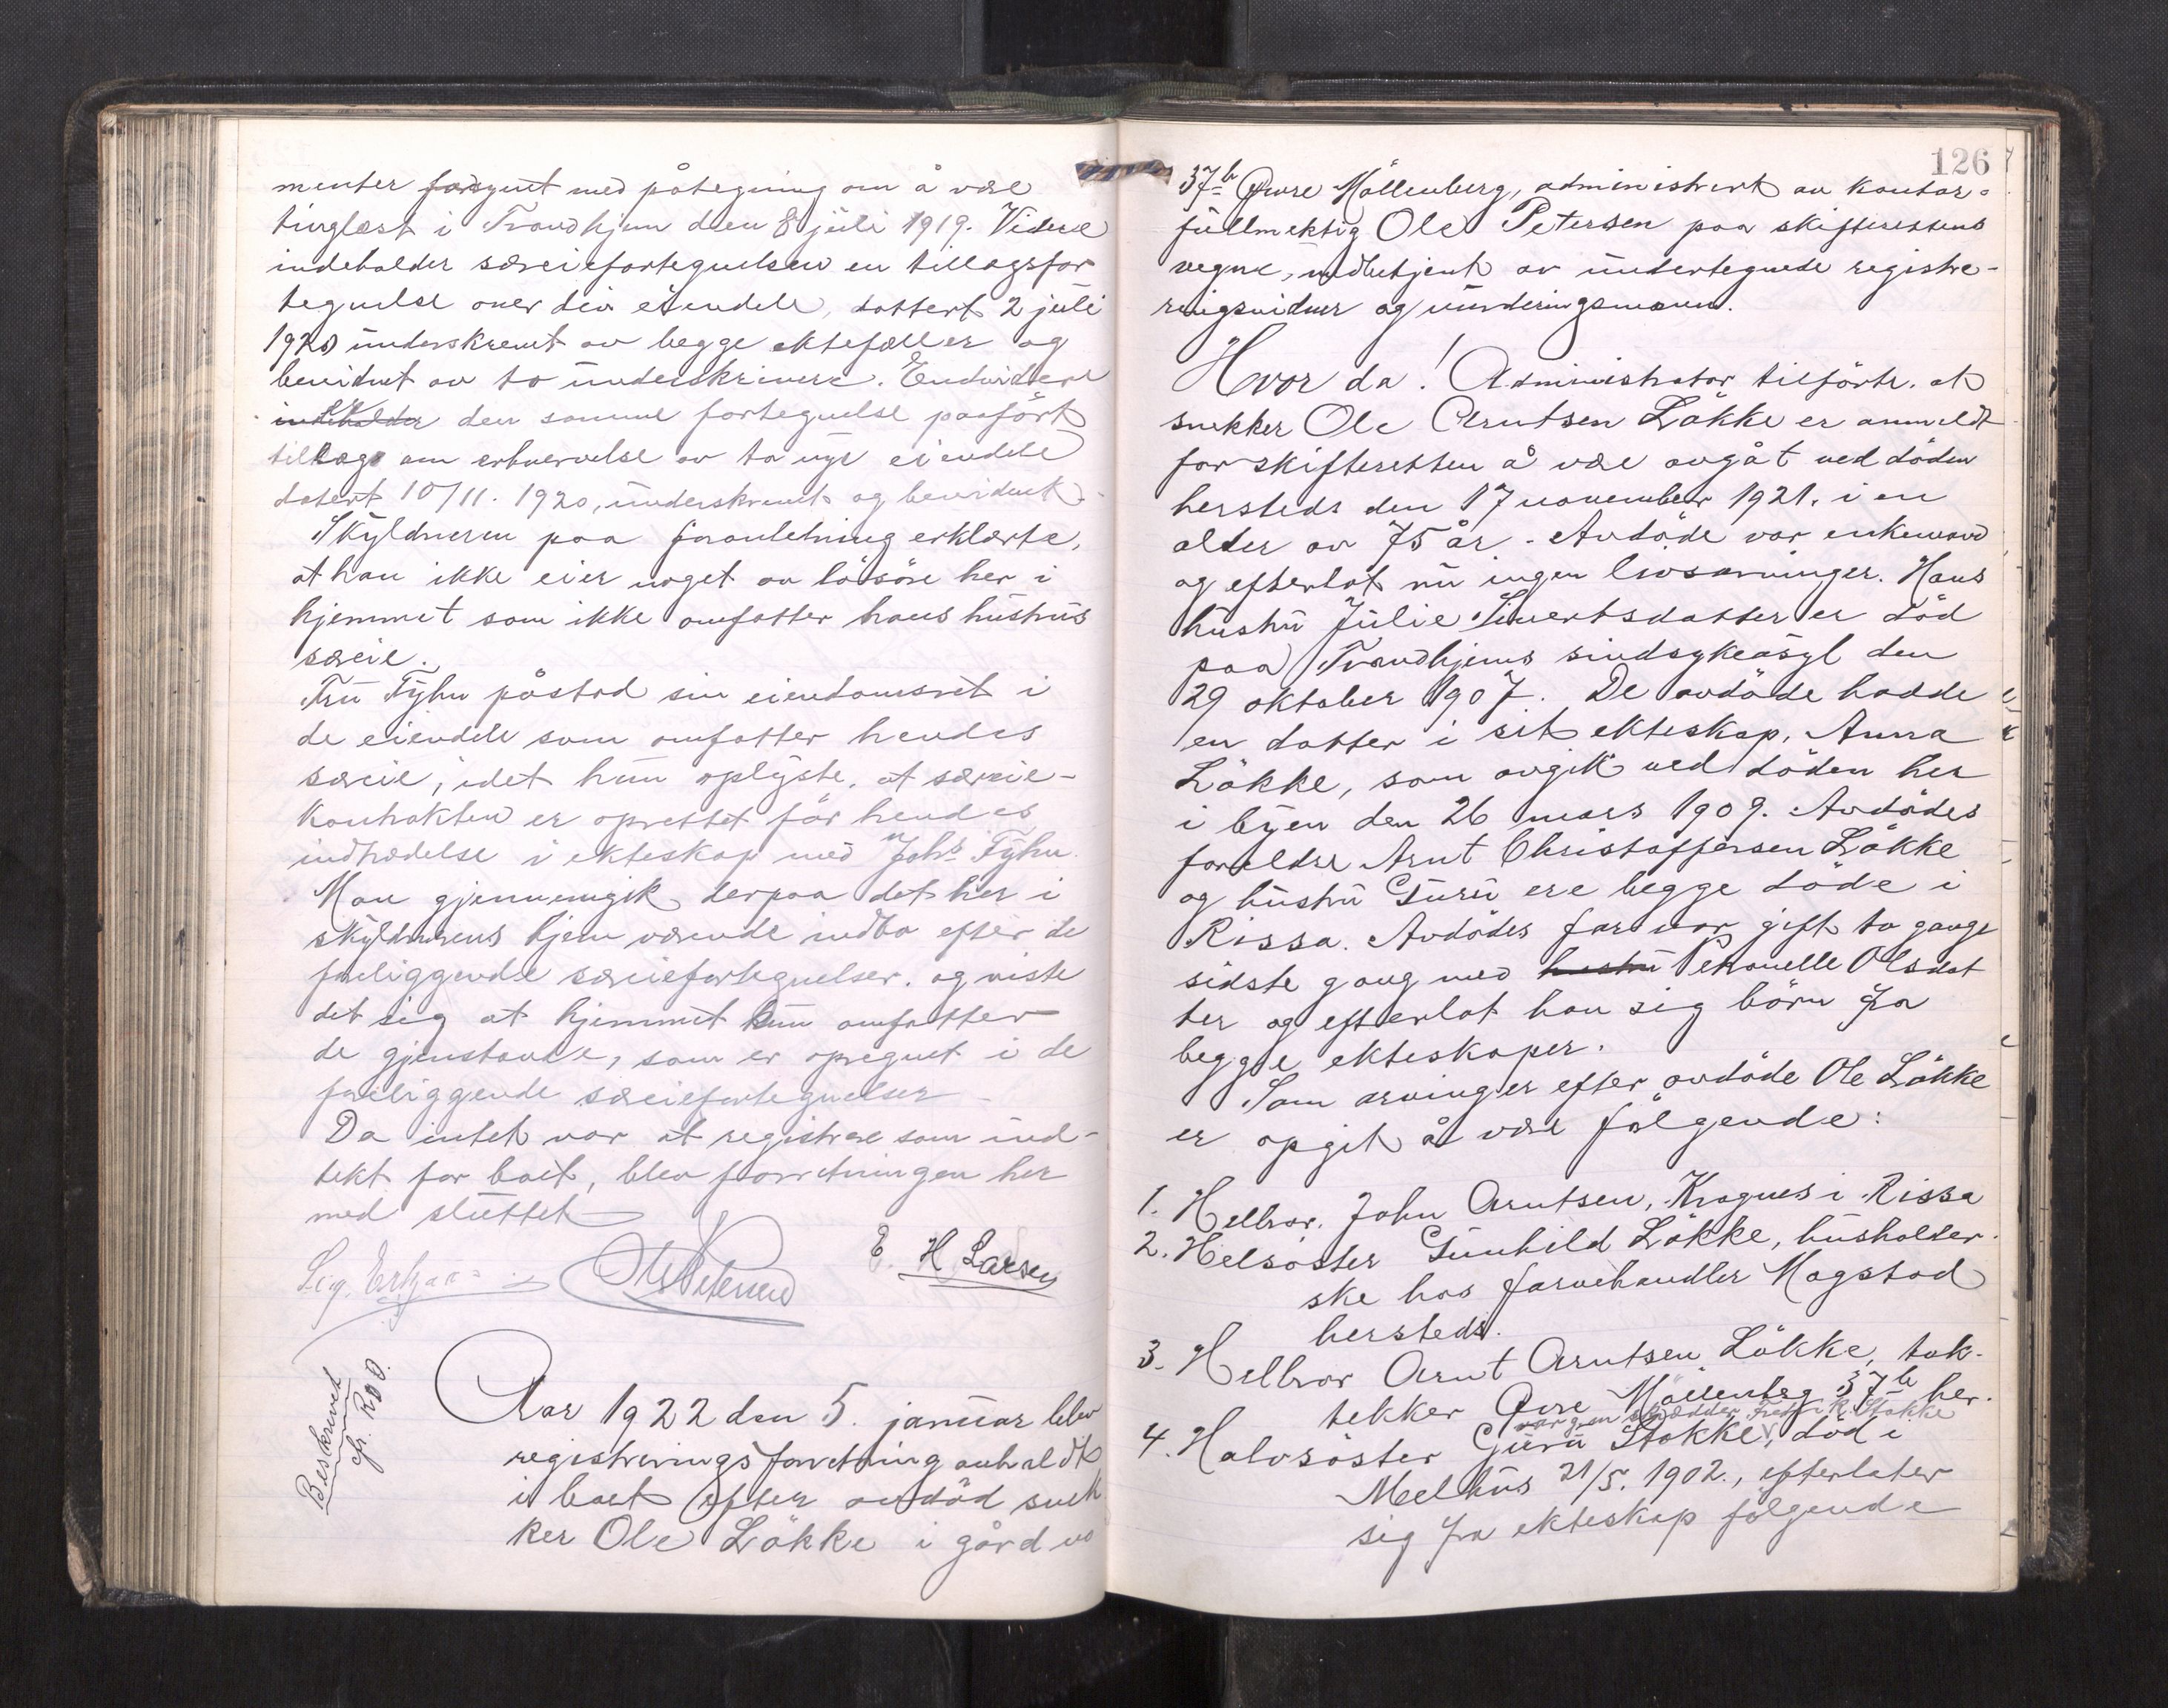 menter forsynt med påtegning om å være
tinglæst i Trondhjem den 8 juli 1919. Videre
indeholder særeiefortegnelsen en tillægsfor
tegnelse over div eiendele, dattert 2 juli
1920 underskrevet av begge ektefæller og
bevidnet av to underskrivere. Endvidere
indeholder den samme fortegnelse paaført
tillæg om erhvervelse av to nye eiendele
datert 10/11. 1920, underskrevet og bevidnet.
Skyldneren paa foranledning erklærte,
at han ikke eier noget av løsøre her i
hjemmet som ikke omfatter hans hustrus
særeie.
Fru Tyhn påstod sin eiendomsret i
de eiendele som omfatter hendes
særeie, idet hun oplyste, at særeie-
kontrakten er oprettet før hendes
indtrædelse i ekteskap med Johs Tyhn.
Man gjennemgik derpaa det her i
skyldnerens hjem værende indbo efter de
foreliggende særeiefortegnelser, og viste
det sig at hjemmet kun omfatter
de gjenstande, som er opregnet i de
foreliggende særeiefortegnelser -
Da intet var at registrere som ind-
tekt for boet, blev forretningen her
med sluttet
Ole Petersen
E. H Larsen
Beskrevet
Aar 1922 den 5. januar blev
registreringsforretning avholdt
i boet efter avdød snek
ker Ole Løkke i gård no
126
37b Øvre Møllenberg, administrert av kontor-
fullmektig Ole Petersen paa skifterettens
vegne, medbetjent av undertegnede registre-
ringsvidner og vurderingsmænd.
Hvor da! Administrator tilførte, at
snekker Ole Arntsen Løkke er anmeldt
for skifteretten å være avgåt ved døden
hersteds den 17 november 1921. i en
alder av 75 år. - Avdøde var enkemand
og efterlot nu ingen livsarvinger. Hans
hustru Julie Sivertsdatter er død
paa Trondhjems sindsykeasyl den
29 oktober 1907. De avdøde hadde
en datter i sit ekteskap, Anna
Løkke, som avgik ved døden her
i byen den 26 mars 1909. Avdødes
forældre Arnt Christoffersen Løkke
og hustru Guru ere begge døde i
Rissa. Avdødes far var gift to gange
sidste gang med hustru Petronelle Olsdat
ter og efterlot han sig børn fra
begge ekteskaper.
Som arvinger efter avdøde Ole Løkke
er opgit å være følgende:
1. Helbror. John Arntsen, Kragnes i Rissa
2. Helsøster Gunhild Løkke, husholder-
ske hos farvehandler Magstad
hersteds.
3. Helbror Arnt Arntsen Løkke, tak-
tekker Øvre Møllenberg 37b her.
Fredrik R. Stokke
4. Halvsøster Guru Stokke, død i
Melhus 21/5. 1902., efterlater
sig fra ekteskap følgende